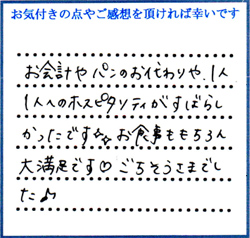 お気付きの点やご感想を頂ければ幸いです
お会計やパンのおかわりや、1人
1人へのホスピタリティがすばらし
かったです☆☆ お食事ももちろん
大満足です♡ ごちそうさまでし
た♪